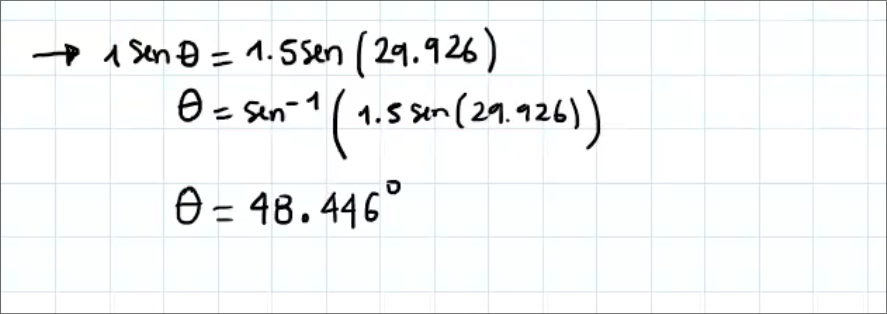 → 1 sen θ = 1.5 sen (29.926)
θ = sen⁻¹ (1.5 sen (29.926))
θ = 48.446°